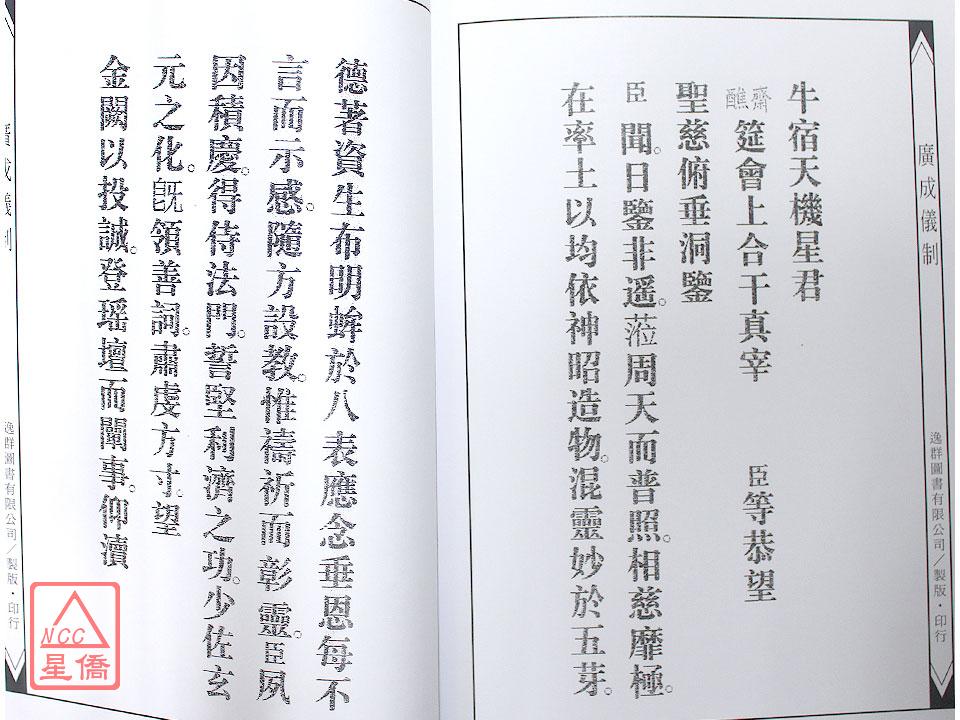 廣成儀制
逸群圖書有限公司／製版・印行
牛宿天機星君
齋醮筵會上合干真宰　臣等恭望
聖慈俯垂洞鑒
臣聞。日鑒非遥。蒞周天而普照。相慈靡極。
在率土以均依神昭造物。混靈妙於五芽。
德著資生布明蛑於八表應念垂恩每不
言而示感。隨方設教。惟禱祈而彰靈。臣夙
因積慶。得侍法門。誓堅利濟之功。少佐玄
元之化。旣領善詞。肅虔方寸。望
金闕以投誠。登瑶壇而闡事。仰瀆
廣成儀制
逸群圖書有限公司／製版・印行
NCC
星僑